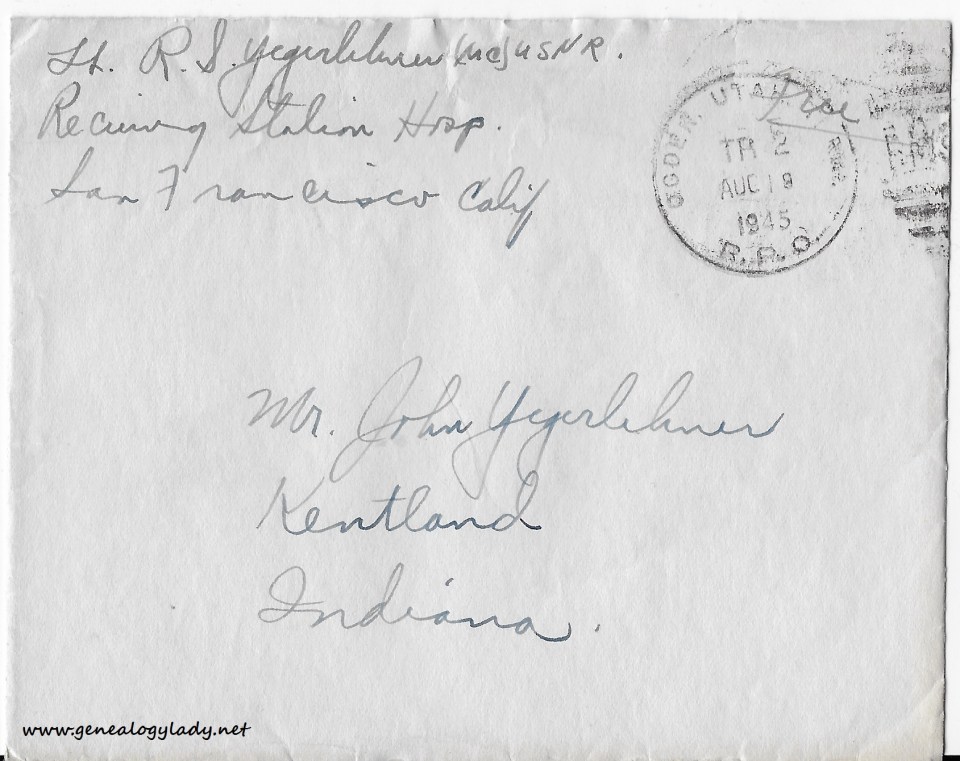 Lt. R. S. Yegerlehner (MC) USNR.
Receiving Station Hosp.
San Francisco Calif
Free
OGDEN, UTAH.
TR 2
AUG 19
1945
R.P.O.
Mr. John Yegerlehner
Kentland
Indiana.
www.genealogylady.net